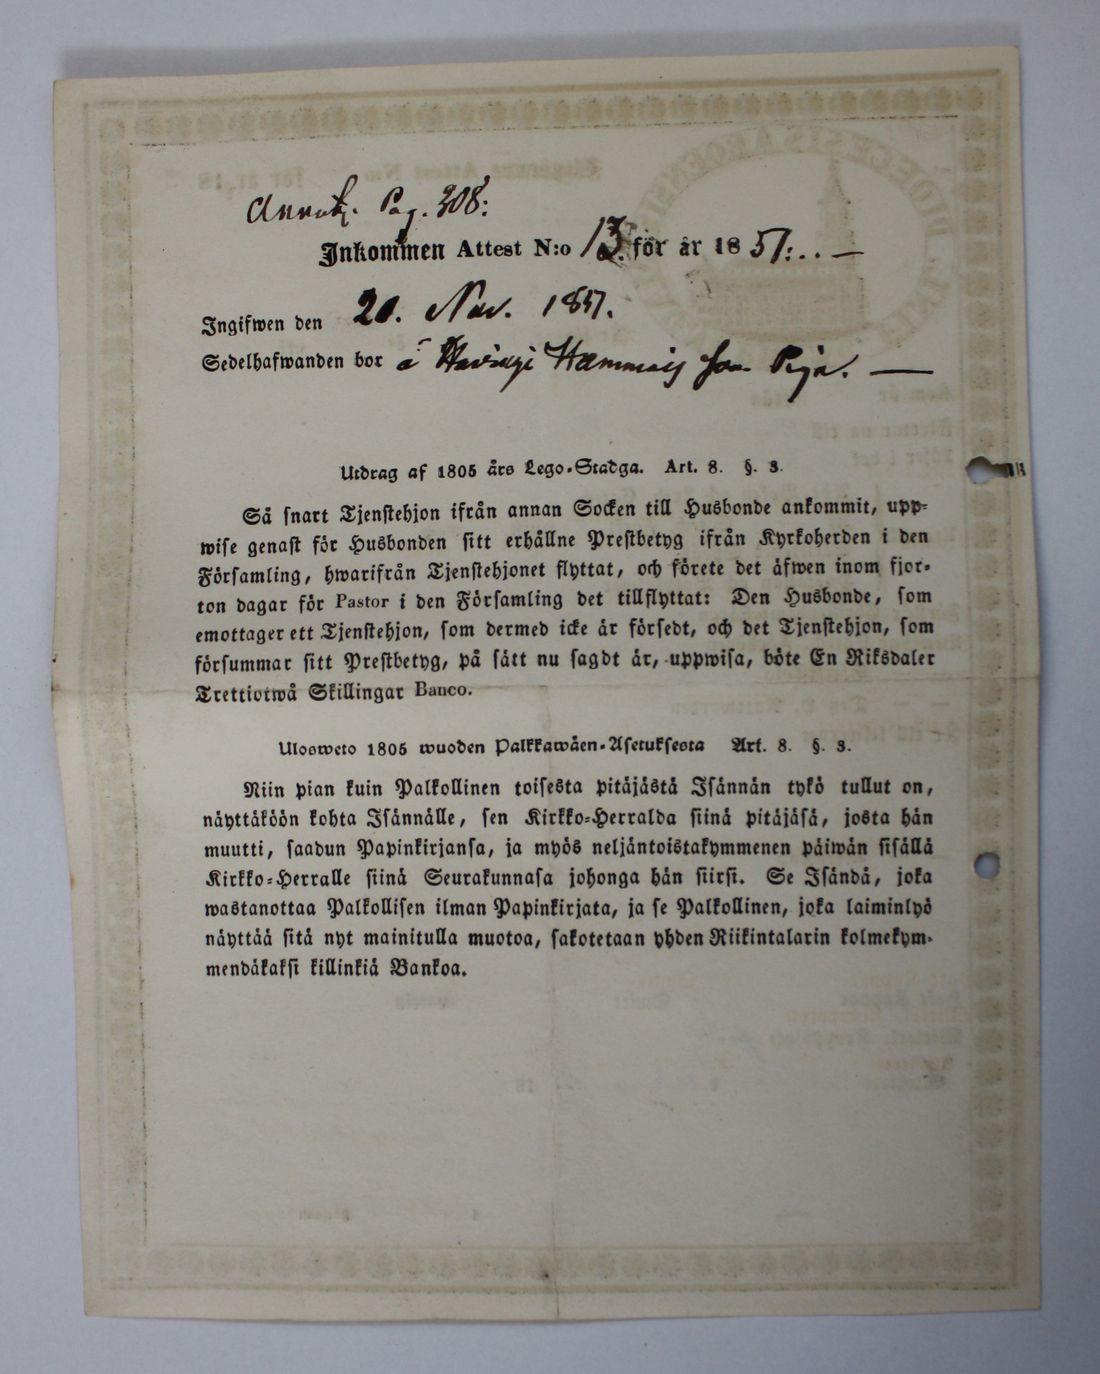 Annot. Pag. 308:
Inkommen Attest N:o 13. för år 1857:..—
Ingifwen den 20. Nov. 1857.
Sedelhafwanden bor å Hammais som Piga. —
Utdrag af 1805 års Lego-Stadga. Art. 8. §. 3.
Så snart Tjenstehjon ifrån annan Socken till Husbonde ankommit, upp-
wise genast för Husbonden sitt erhållne Prestbetyg ifrån Kyrkoherden i den
Församling, hwarifrån Tjenstehjonet flyttat, och förete det äfwen inom fjor-
ton dagar för Pastor i den Församling det tillflyttat: Den Husbonde, som
emottager ett Tjenstehjon, som dermed icke är försedt, och det Tjenstehjon, som
försummar sitt Prestbetyg, på sätt nu sagdt är, uppwisa, böte En Riksdaler
Trettiotwå Skillingar Banco.
Ulosweto 1805 wuoden Palkkawäen-Asetuksesta Art. 8. §. 3.
Niin pian kuin Palkollinen toisesta pitäjästä Isännän tykö tullut on,
näyttäköön kohta Isännälle, sen Kirkko-Herralda siinä pitäjäsä, josta hän
muutti, saadun Papinkirjansa, ja myös neljäntoistakymmenen päiwän sisällä
Kirkko-Herralle siinä Seurakunnasa johonga hän siirsi. Se Isändä, joka
wastanottaa Palkollisen ilman Papinkirjata, ja se Palkollinen, joka laiminlyö
näyttää sitä nyt mainitulla muotoa, sakotetaan yhden Riikintalarin kolmekym-
mendäkaksi killinkiä Bankoa.